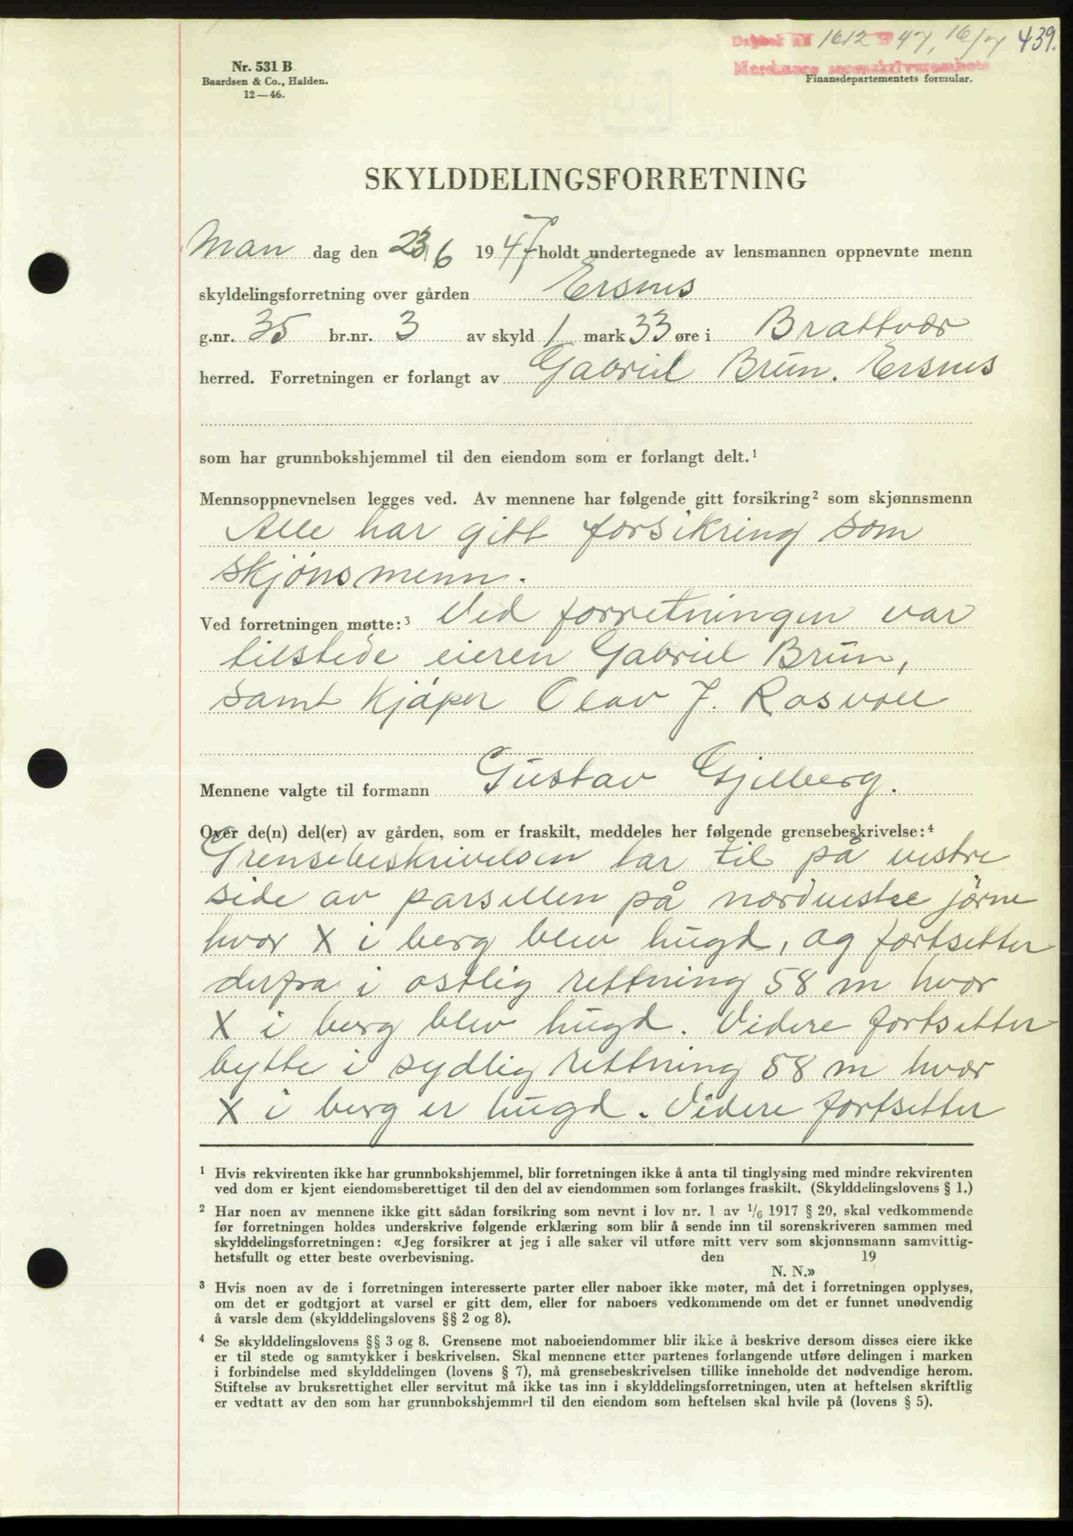 Dagbok nr 1612 1947, 16/7 439.
Nordmøre sorenskriverembete
Nr. 531 B
Baardsen & Co., Halden.
12—46.
Finansdepartementets formular.
SKYLDDELINGSFORRETNING
Man dag den 23/6 1947 holdt undertegnede av lensmannen oppnevnte menn
skyldelingsforretning over gården Ersnes
g.nr. 35 br.nr. 3 av skyld 1 mark 33 øre i Brattvær
herred. Forretningen er forlangt av Gabriel Brun. Ersnes
som har grunnbokshjemmel til den eiendom som er forlangt delt.¹
Mennsoppnevnelsen legges ved. Av mennene har følgende gitt forsikring² som skjønnsmenn
Alle har gitt forsikring som
skjønsmenn.
Ved forretningen møtte:³ Ved forretningen var
tilstede eieren Gabriel Brun,
samt kjøper Olav J. Rosvoll
Mennene valgte til formann Gustav Gjelberg.
Over de(n) del(er) av gården, som er fraskilt, meddeles her følgende grensebeskrivelse:⁴
Grensebeskrivelsen tar til på vestre
side av parsellen på nordvestre jørne
hvor X i berg blev hugd, og fortsetter
derfra i østlig rettning 58 m hvor
X i berg blev hugd. Videre fortsetter
bytte i sydlig rettning 58 m hvor
X i berg er hugd. Videre fortsetter
¹ Hvis rekvirenten ikke har grunnbokshjemmel, blir forretningen ikke å anta til tinglysing med mindre rekvirenten
ved dom er kjent eiendomsberettiget til den del av eiendommen som forlanges fraskilt. (Skylddelingslovens § 1.)
² Har noen av mennene ikke gitt sådan forsikring som nevnt i lov nr. 1 av 1/6 1917 § 20, skal vedkommende
før forretningen holdes underskrive følgende erklæring som blir å sende inn til sorenskriveren sammen med
skylddelingsforretningen: «Jeg forsikrer at jeg i alle saker vil utføre mitt verv som skjønnsmann samvittig-
hetsfullt og etter beste overbevisning. den 19
N. N.»
³ Hvis noen av de i forretningen interesserte parter eller naboer ikke møter, må det i forretningen opplyses,
om det er godtgjort at varsel er gitt dem, eller for naboers vedkommende om det er funnet unødvendig
å varsle dem (skylddelingslovens §§ 2 og 8).
⁴ Se skylddelingslovens §§ 3 og 8. Grensene mot naboeiendommer blir ikke å beskrive dersom disses eiere ikke
er til stede og samtykker i beskrivelsen. Skal mennene etter partenes forlangende utføre delingen i marken
i forbindelse med skylddelingen (lovens § 7), må grensebeskrivelsen tillike inneholde det nødvendige herom.
Stiftelse av bruksrettighet eller servitut må ikke tas inn i skylddelingsforretningen, uten at heftelsen skriftlig
er vedtatt av den som har grunnbokshjemmel til den eiendom som heftelsen skal hvile på (lovens § 5).